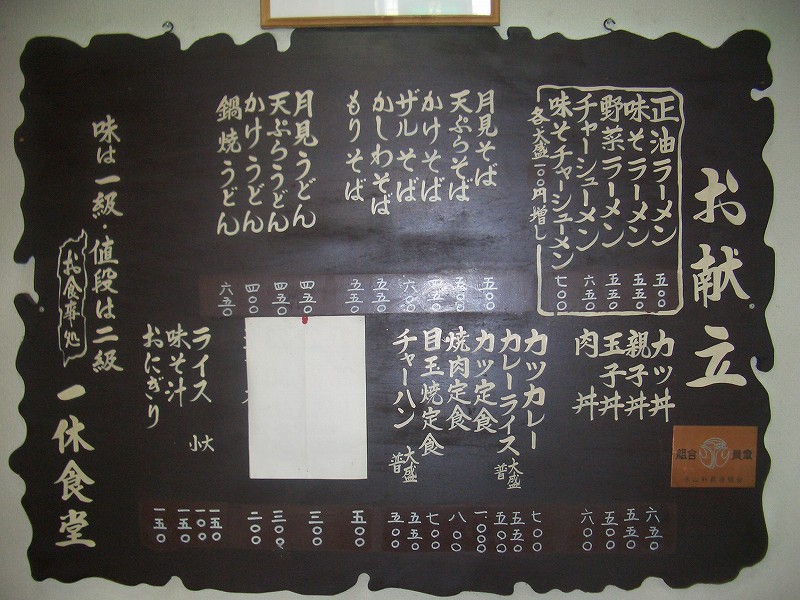 お献立
正油ラーメン 五〇〇
味そラーメン 五五〇
野菜ラーメン 五五〇
チャーシューメン 六五〇
味そチャーシューメン 七〇〇
各大盛一〇〇円増し
月見そば 五〇〇
天ぷらそば 五〇〇
かけそば 四五〇
ザルそば 六〇〇
かしわそば 五五〇
もりそば 五五〇
月見うどん 四五〇
天ぷらうどん 四五〇
かけうどん 四〇〇
鍋焼うどん 六五〇
カツ丼 六五〇
親子丼 五五〇
玉子丼 五〇〇
肉丼 六〇〇
カツカレー 七〇〇
カレーライス 大盛 五五〇
普 五〇〇
カツ定食 一、〇〇〇
焼肉定食 八〇〇
目玉焼定食 七〇〇
チャーハン 大盛 五五〇
普 五〇〇
五〇
三〇〇
三〇〇
二〇〇
ライス 大 一五〇
小 一〇〇
味そ汁 一五〇
おにぎり 一五〇
味は一級・値段は二級
お食事処
一休食堂
組合員章